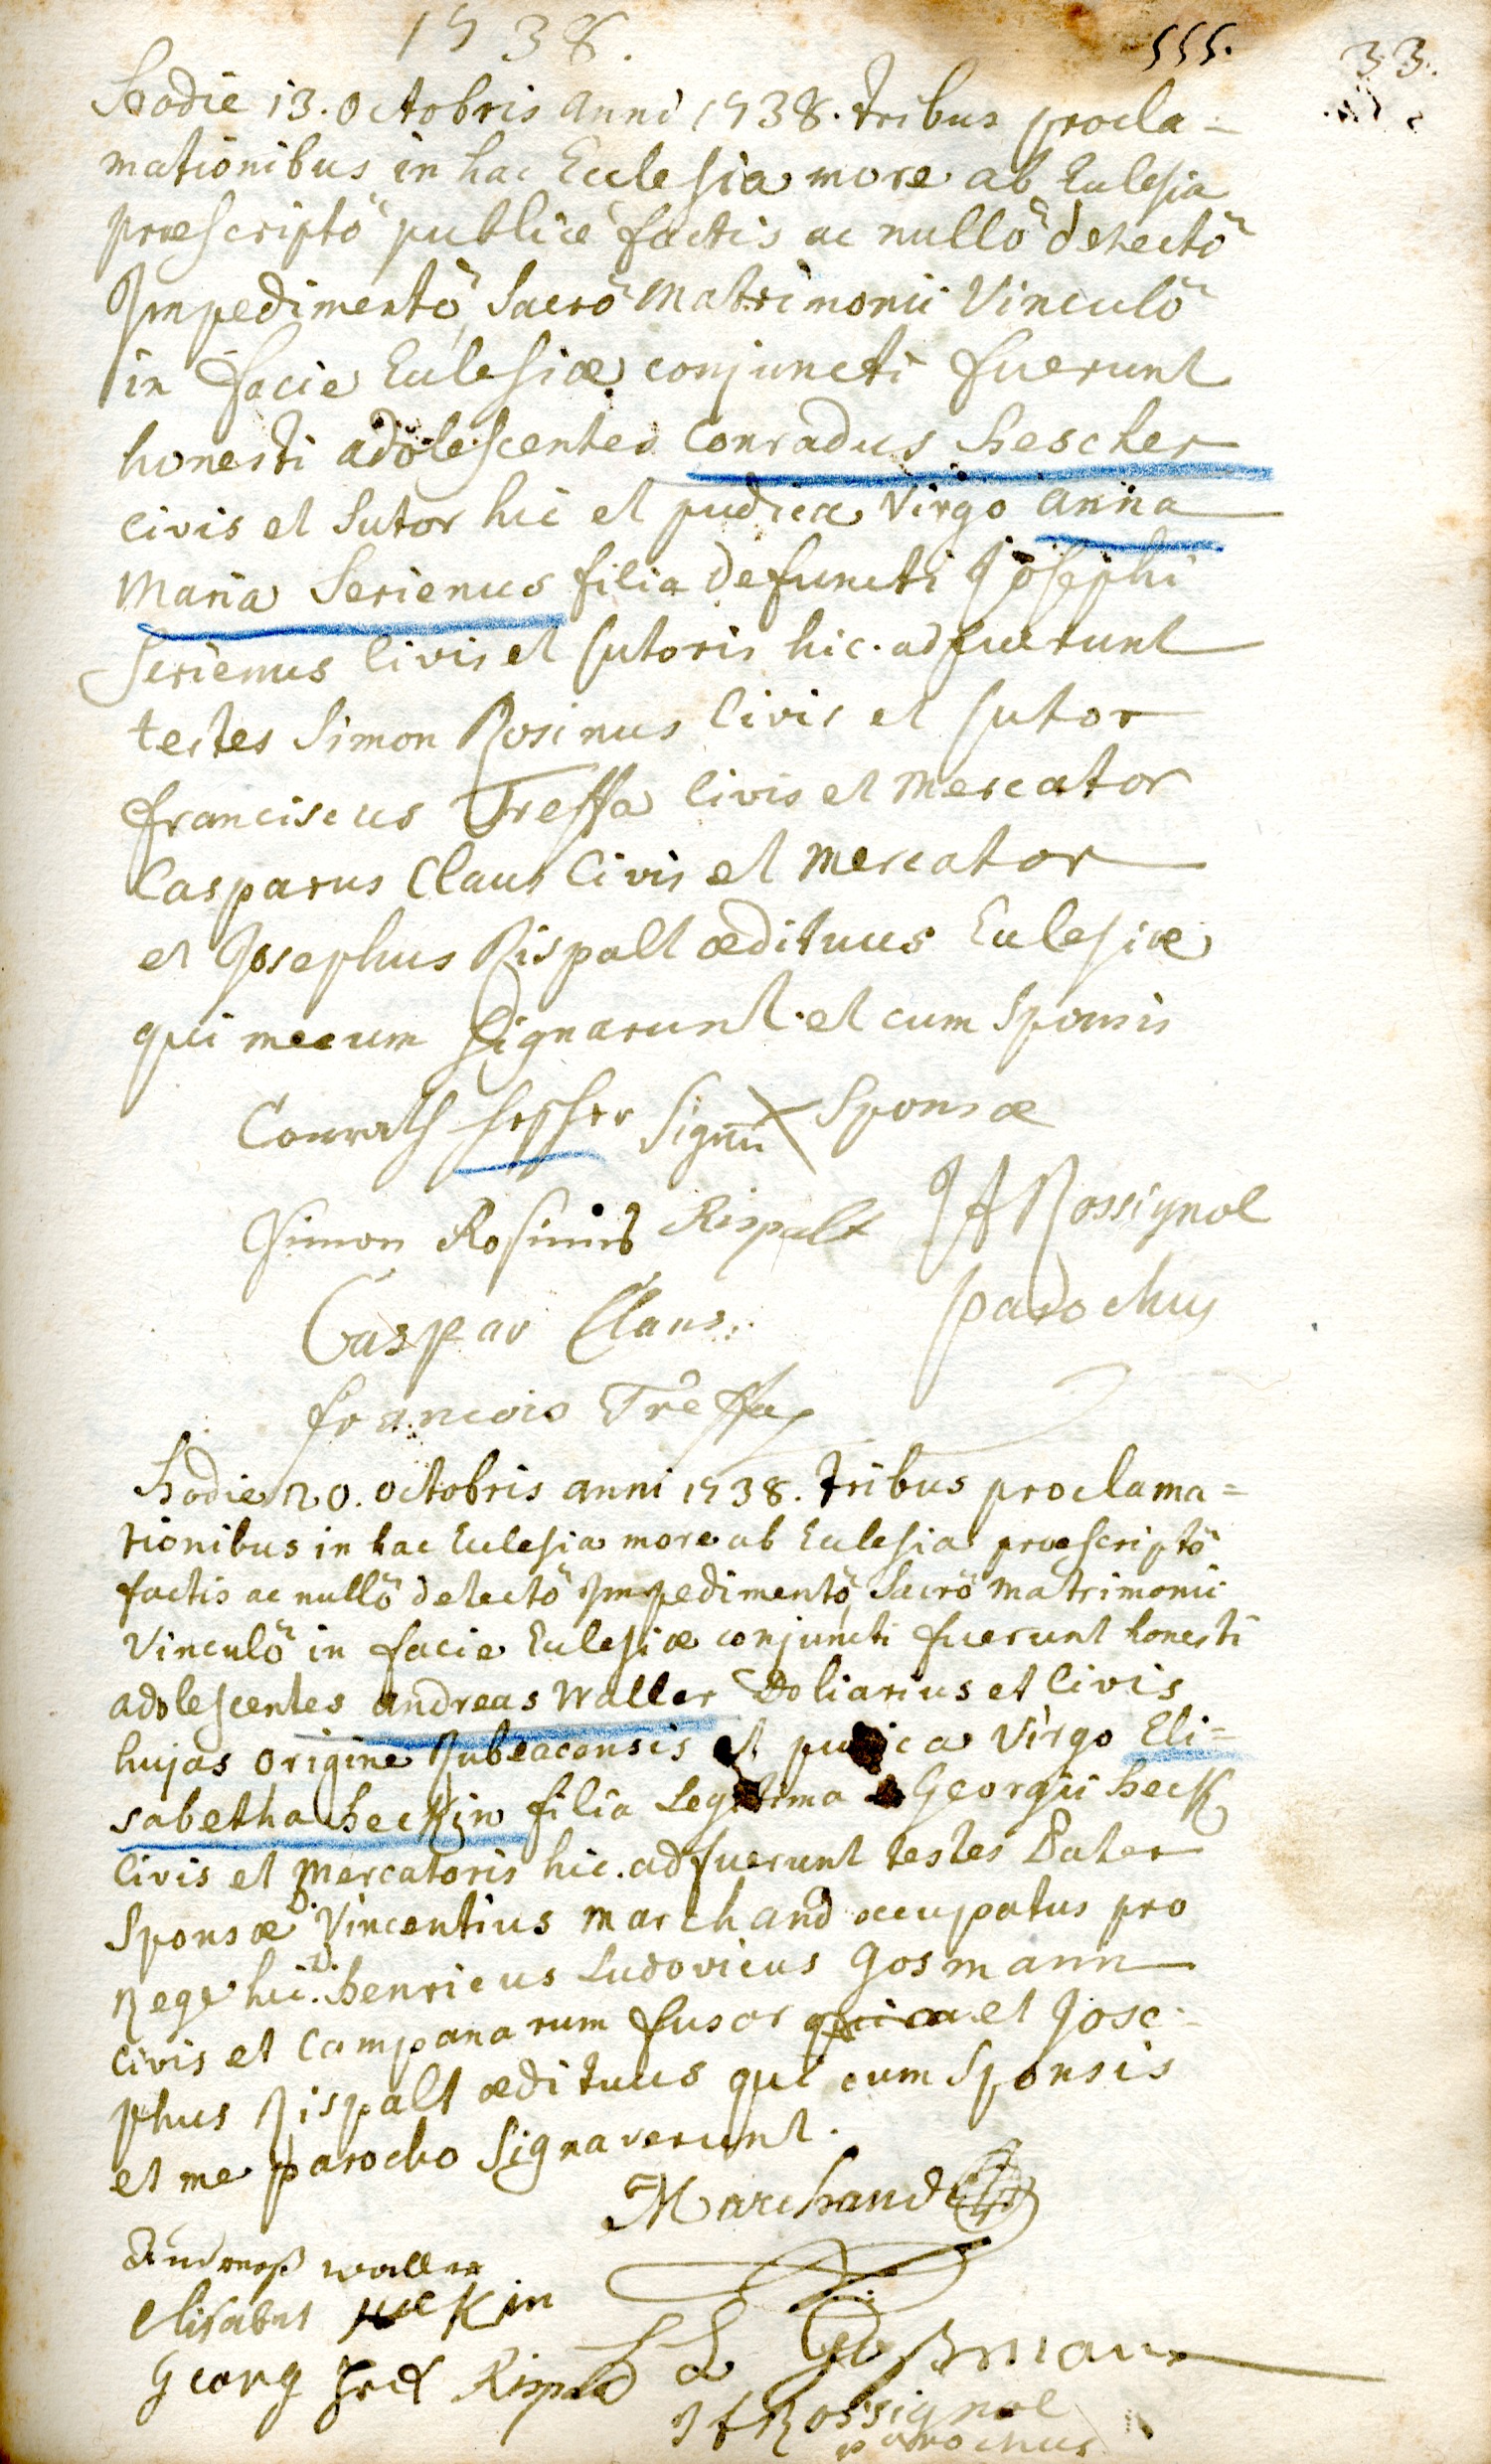 1738.
555.
33.
Hodie 13. octobris anni 1738. tribus procla=
mationibus in hac Ecclesia more ab Ecclesia
præscriptõ publicè factis ac nullõ detectõ
Impedimentõ, Sacrõ Matrimonii Vinculõ
in facie Ecclesiæ conjuncti fuerunt
honesti adolescentes Conradus hescher
civis et Sutor hic et pudica Virgo anna
Maria Serienus filia defuncti Josephi
Serienus Civis et sutoris hic. adfuerunt
testes Simon Rosinus Civis et sutor
franciscus Treffa Civis et Mercator
Casparus Claus Civis et Mercator
et Josephus Rispalt ædituus Ecclesiæ
qui mecum signarunt et cum Sponsis
Conrath hescher Signū X Sponsæ
Simon Rosinus Rispalt JA Rossignol
Caspar Claus. parochus
francois Treffa
Hodie 20. octobris anni 1738. tribus proclama=
tionibus in hac Ecclesia more ab Ecclesia præscriptõ
factis ac nullõ detectõ Impedimentõ, Sacrõ Matrimonii
Vinculõ in facie Ecclesiæ conjuncti fuerunt honesti
adolescentes andreas Waller Doliarius et Civis
hujas origine Rubeacensis et pudica Virgo Eli=
sabetha heckin filia Legitima Georgii heck
Civis et Mercatoris hic. adfuerunt testes Pater
Sponsæ D. Vincentius Marchand occupatus pro
Rege hic. D. henricus Ludovicus Gosmann
civis et Campanarum fusor et Jose=
phus Rispalt ædituus qui cum Sponsis
et me parocho Signaverunt.
Marchand
Andreas waller
Elisabet heckin
Georg heck Rispalt H L Goßman
JA Rossignol
parochus